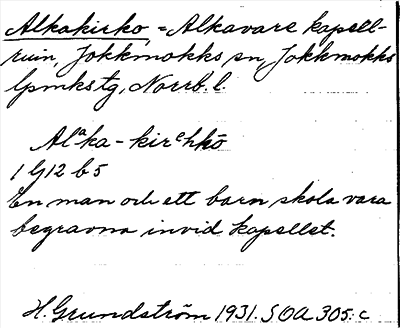 Alkakirko, = Alkavare kapell-
ruin, Jokkmokks sn, Jokkmokks
lpmkstg, Norrb. l.
Alᵃka-kirᵉhkō
1 G 12 b 5
En man och ett barn skola vara
begravna invid kapellet.
H. Grundström 1931. SOA 305. c